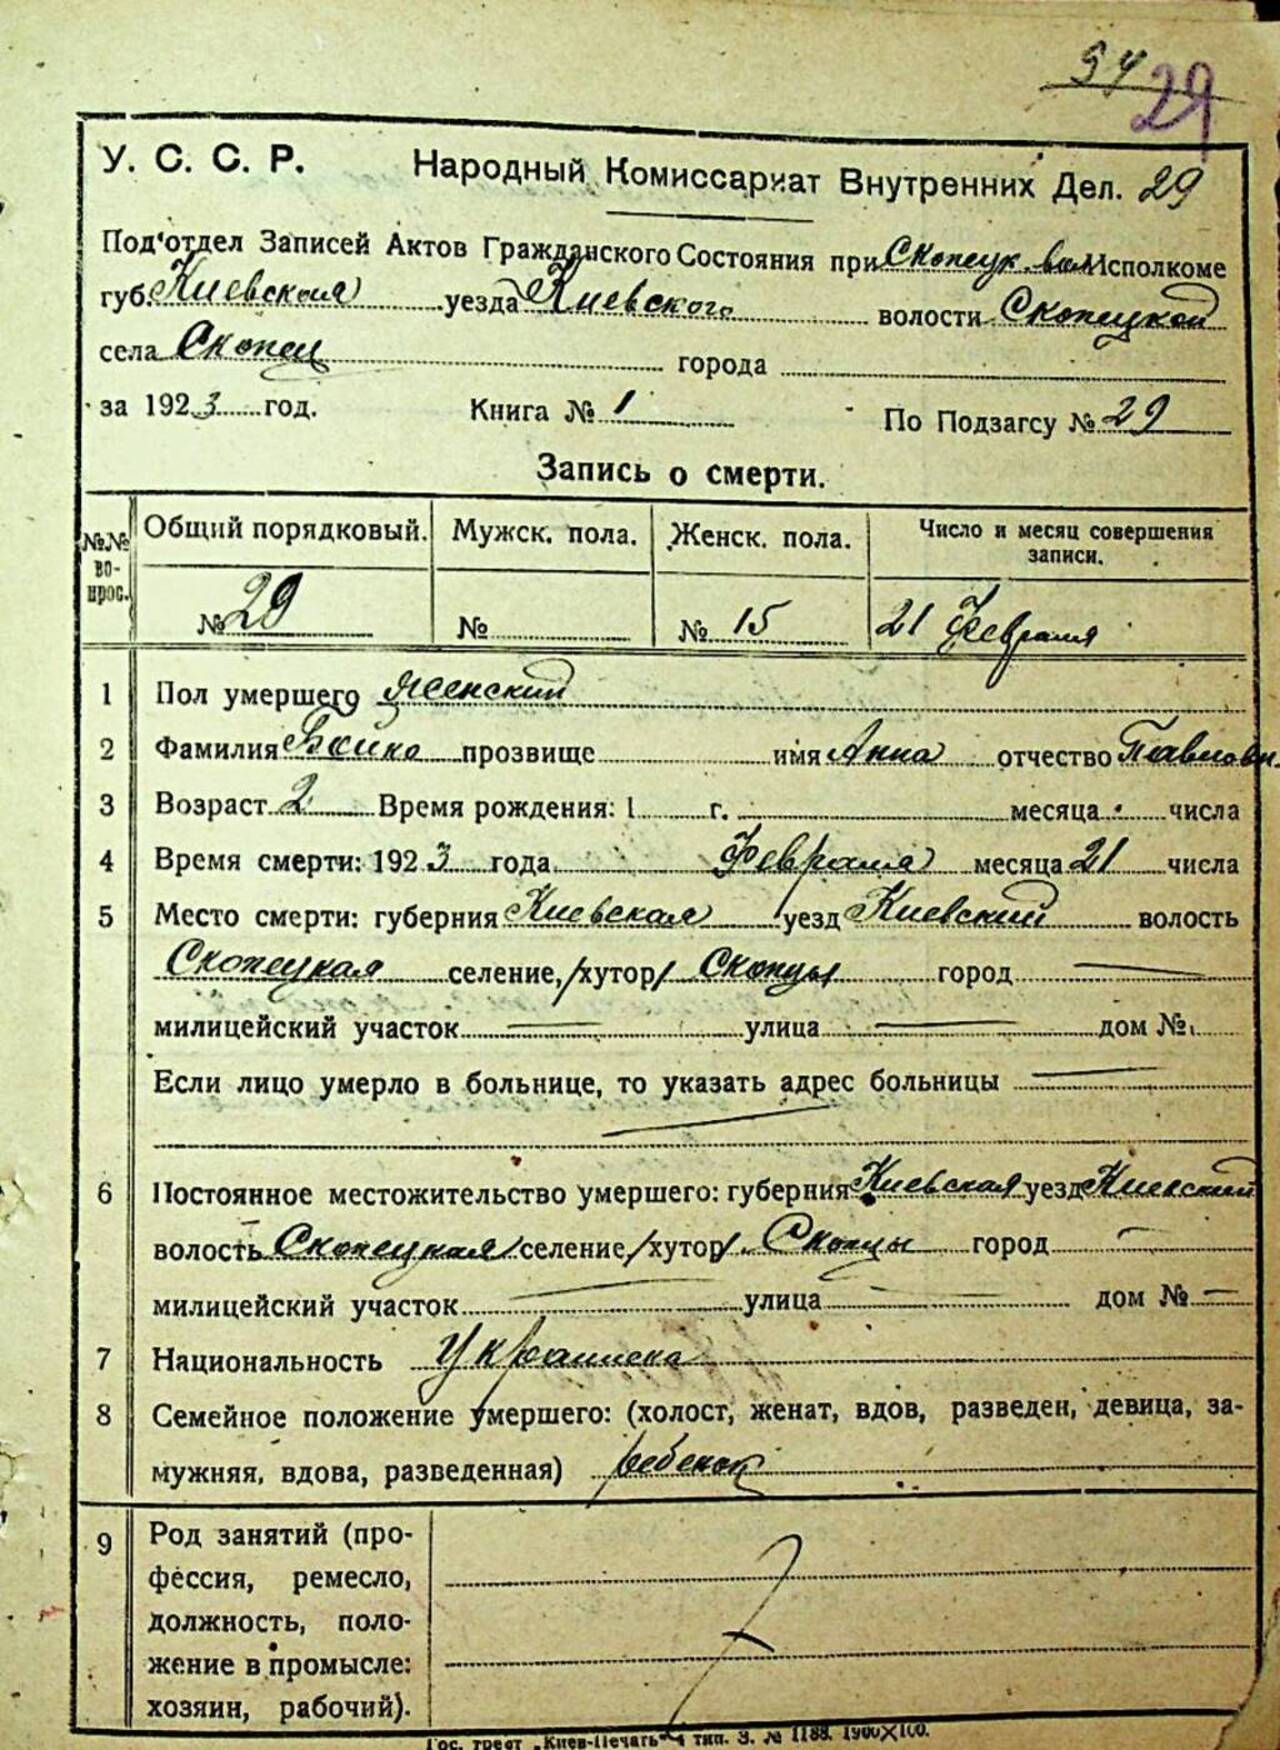 54 29
У. С. С. Р. Народный Комиссариат Внутренних Дел. 29
Под'отдел Записей Актов Гражданского Состояния при Скопецк. вол Исполкоме
губ. Киевская уезда Киевского волости Скопецкой
села Скопец города
за 1923 год. Книга № 1 По Подзагсу № 29
Запись о смерти.
№№ вопрос. Общий порядковый. Мужск. пола. Женск. пола. Число и месяц совершения записи.
№ 29 № № 15 21 Февраля
1 Пол умершего женский
2 Фамилия Бойко прозвище имя Анна отчество Павловн.
3 Возраст 2 Время рождения: 1 г. месяца числа
4 Время смерти: 1923 года Февраля месяца 21 числа
5 Место смерти: губерния Киевская уезд Киевский волость
Скопецкая селение, /хутор/ Скопцы город —
милицейский участок — улица — дом №
Если лицо умерло в больнице, то указать адрес больницы —
6 Постоянное местожительство умершего: губерния Киевская уезд Киевский
волость Скопецкая селение, /хутор/ Скопцы город —
милицейский участок — улица — дом № —
7 Национальность Украинска
8 Семейное положение умершего: (холост, женат, вдов, разведен, девица, за-
мужняя, вдова, разведенная) ребенок
9 Род занятий (про-
фессия, ремесло,
должность, поло-
жение в промысле:
хозяин, рабочий).
Гос. трест „Киев-Печать" 4 тип. З. № 1188. 1900×100.